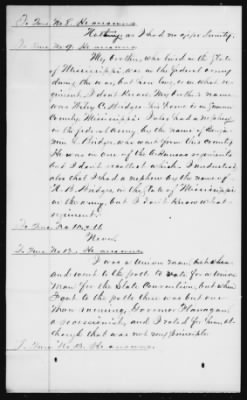 To Ques. No 8. He answers
Nothing as I had no opportunity.
To Ques. No 9. He answers
My brother, who lived in the State
of Mississippi, was in the federal army
during the war, but how long, or in what re-
giment, I dont know. My brother's name
was Wiley C. Bridges. his home is in
County, Mississippi. I also had a nephew
in the federal army, by the name of
Bridges, who went from this County.
He was in one of the Arkansas regiments
but I don't recollect which. I understand
also that I had a nephew by the name of
Bridges, in the State of Mississippi
in the army, but I don't know what
regiment.
To Ques. No 10 & 11
Never
To Ques. No 12. He answers
I was a union man,
and went to the polls to vote for a union
Man for the State Convention, but when
I got to the polls there was but one
man running, Governor Flanagan,
a secessionist, and I voted for him al-
though that was not my principle
To Ques. No 13. He answers